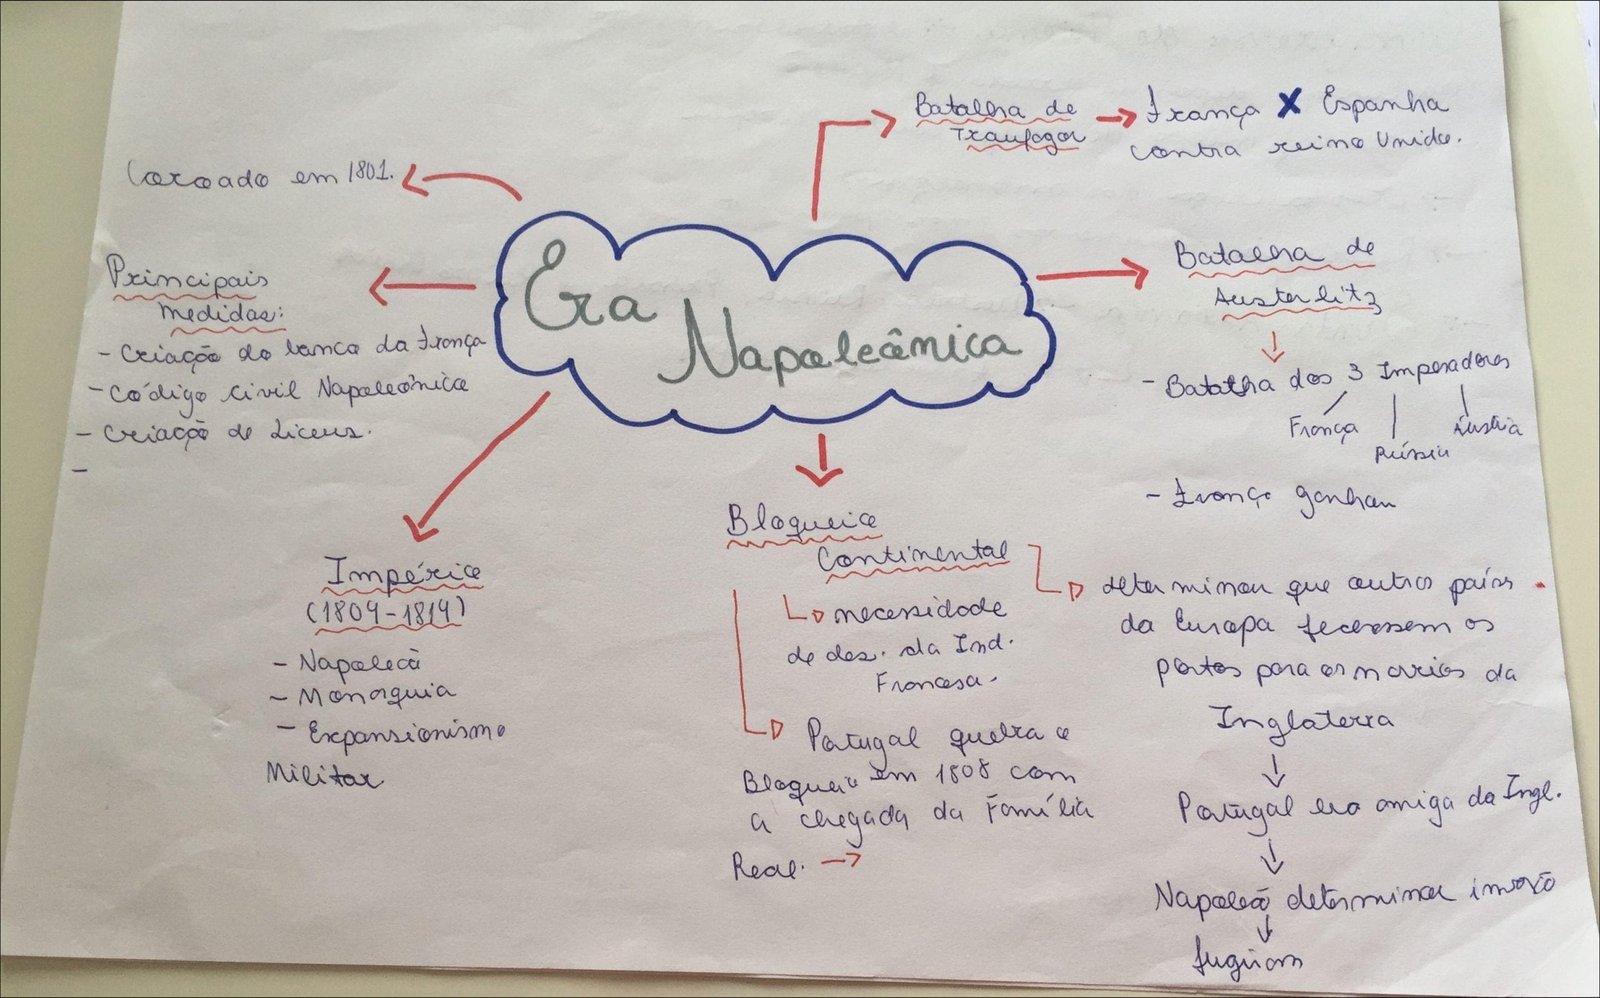 Era
Napoleônica
Coroado em 1801.
Principais
medidas:
- Criação do banca da França
- Código civil Napoleônico
- Criação de Liceus.
-
Império
(1804-1814)
- Napoleão
- Monarquia
- Expansionismo
Militar
Bloqueio
Continental
necessidade
de des. da Ind.
Francesa.
Portugal quebra o
Bloqueio em 1808 com
a chegada da Família
Real. →
determinou que outros países
da Europa fecessem os
portos para os navios da
Inglaterra
↓
Portugal era amiga da Ingl.
↓
Napoleão determinou invasão
↓
fugiram
Batalha de
Traufagar
→ França X Espanha
contra reino Unido.
Batalha de
Austerlitz
↓
- Batalha dos 3 Imperadores
França
Rússia
Áustria
- França ganhou